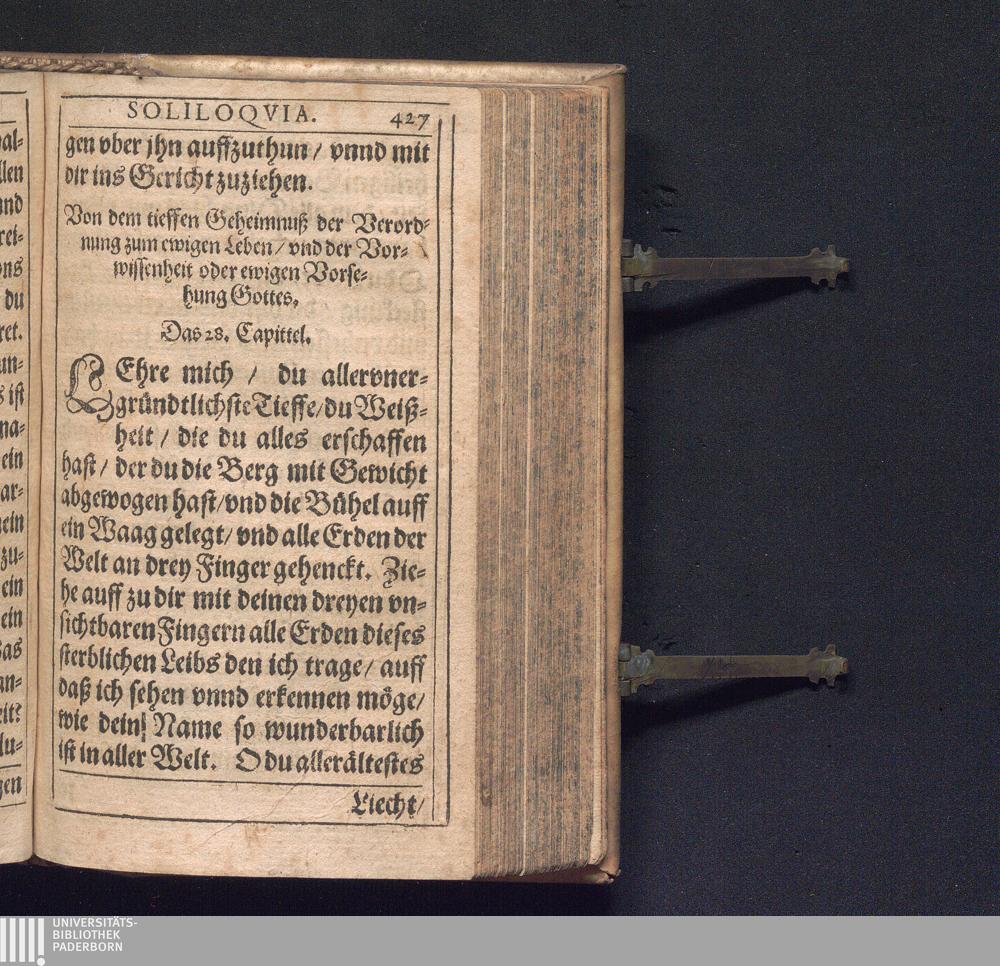 SOLILOQVIA. 427
gen vber jhn auffzuthun / vnnd mit
dir ins Gericht zuziehen.
Von dem tieffen Geheimnuß der Verord-
nung zum ewigen Leben / vnd der Vor-
wissenheit oder ewigen Vorse-
hung Gottes.
Das 28. Capittel.
LEhre mich / du allervner-
gründtlichste Tieffe / du Weiß-
heit / die du alles erschaffen
hast / der du die Berg mit Gewicht
abgewogen hast / vnd die Bühel auff
ein Waag gelegt / vnd alle Erden der
Welt an drey Finger gehenckt. Zie-
he auff zu dir mit deinen dreyen vn-
sichtbaren Fingern alle Erden dieses
sterblichen Leibs den ich trage / auff
daß ich sehen vnnd erkennen möge /
wie dein! Name so wunderbarlich
ist in aller Welt. O du allerältestes
Liecht /
al-
llen
nd
rei-
ns
du
ret.
un-
s ist
na-
ein
ar-
ein
zu-
ein
ein
as
an-
eit?
lu-
gen
UNIVERSITÄTS-
BIBLIOTHEK
PADERBORN